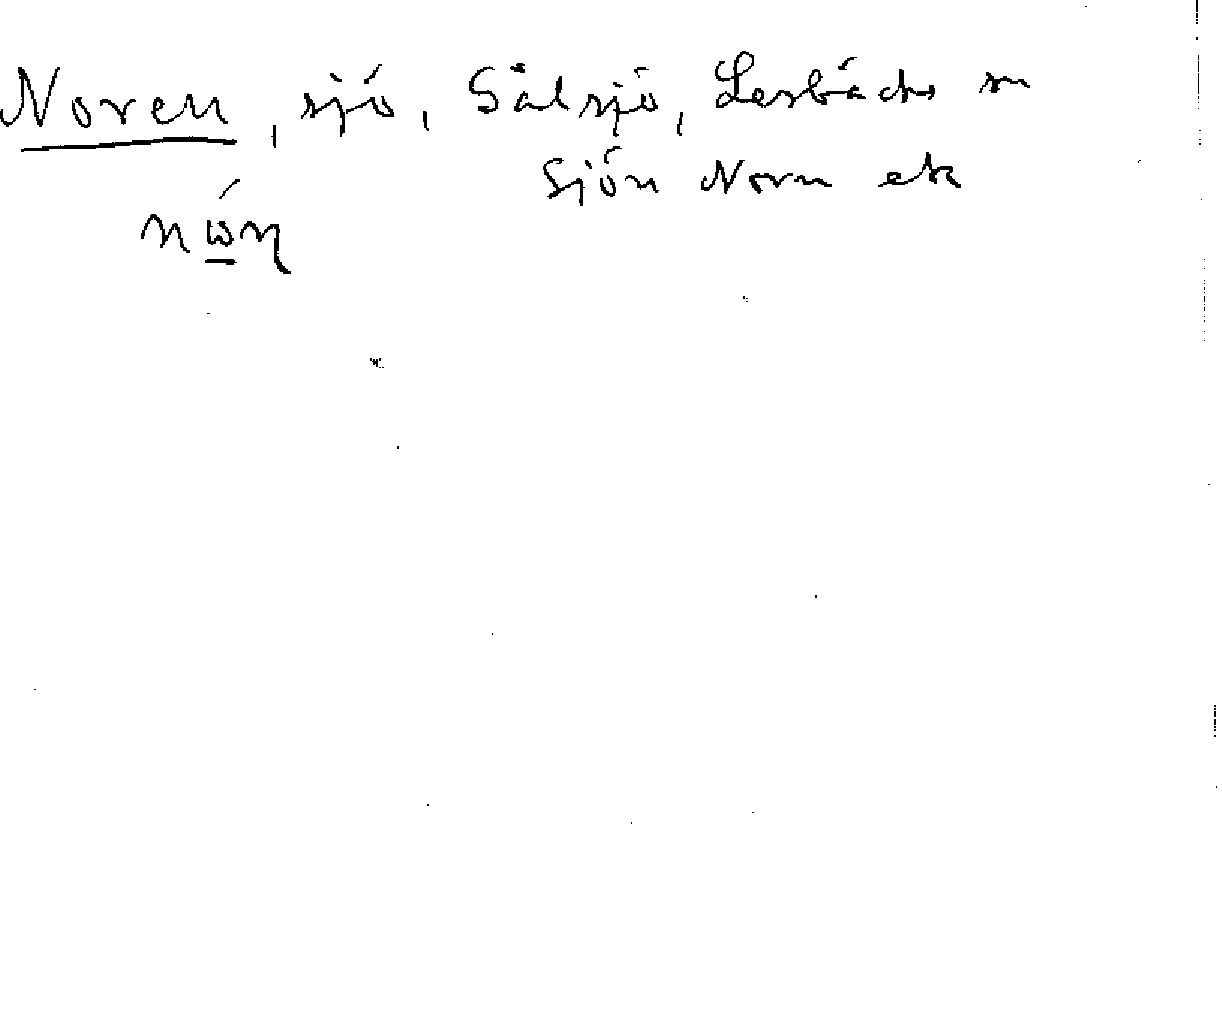 Noren, sjö, Sålsjö, Lerbäcks sn
Sjön Noren ek
nώη